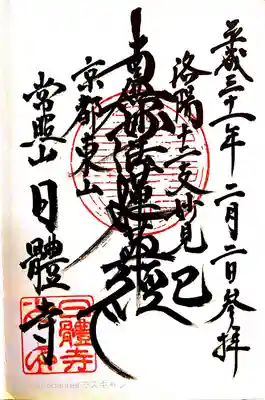 平成三十一年二月二日参拝
洛陽十二支妙見 巳
南無妙法蓮華経
京都東山
常照山 日體寺
日體寺